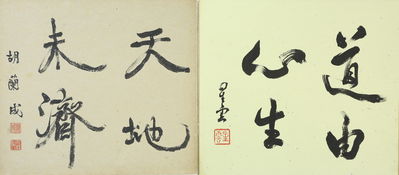 天地
未濟
胡蘭成
道由
心生